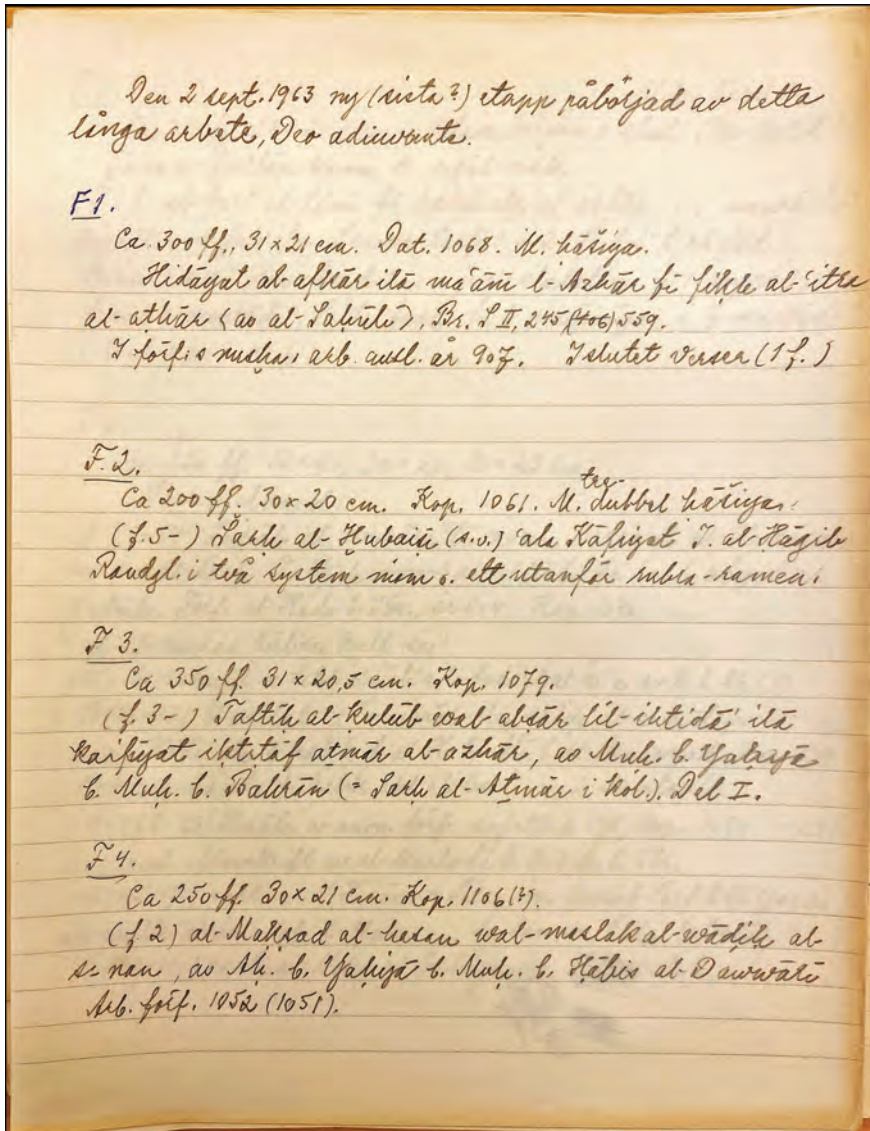 Den 2 sept. 1963 ny (sista?) etapp påbörjad av detta
långa arbete, Deo adiuvante.
F1.
Ca 300 ff., 31 × 21 cm. Dat. 1068. M. ḥāšiya.
Hidāyat al-afkār ilā maʿānī l-Azhār fī fiḳh al-ʿitra
al-aṭhār <av al->, Br. S II, 245 559.
I förf:s nusḫa, arb. avsl. år 907. I slutet verser (1 f.)
F.2.
Ca 200 ff. 30 × 20 cm. Kop. 1061. M. dubbel ḥāšiya.
(f. 5-) Šarḥ al-Ḫubaiṣī (s.v.) ʿalā Kāfiyat I. al-Ḥāǧib
Randgl. i två system inom o. ett utanför rubra-ramen.
F 3.
Ca 350 ff. 31 × 20,5 cm. Kop. 1079.
(f. 3-) Taftīḥ al-ḳulūb wal-abṣār lil-ihtidāʾ ilā
kaifīyat iḳtiṭāf aṯmār al-azhār, av Muḥ. b. Yaḥyā
b. Muḥ. b. Bahrān (= Šarḥ al-Aṯmār i kol.). Del I.
F 4.
Ca 250 ff. 30 × 21 cm. Kop. 1106(?).
(f 2) al-Maḳṣad al-ḥasan wal-maslak al-wāḍiḥ al-
sanan, av Aḥ. b. Yaḥyā b. Muḥ. b. Ḥābis al-Dawwārī
Arb. förf. 1052 (1051).